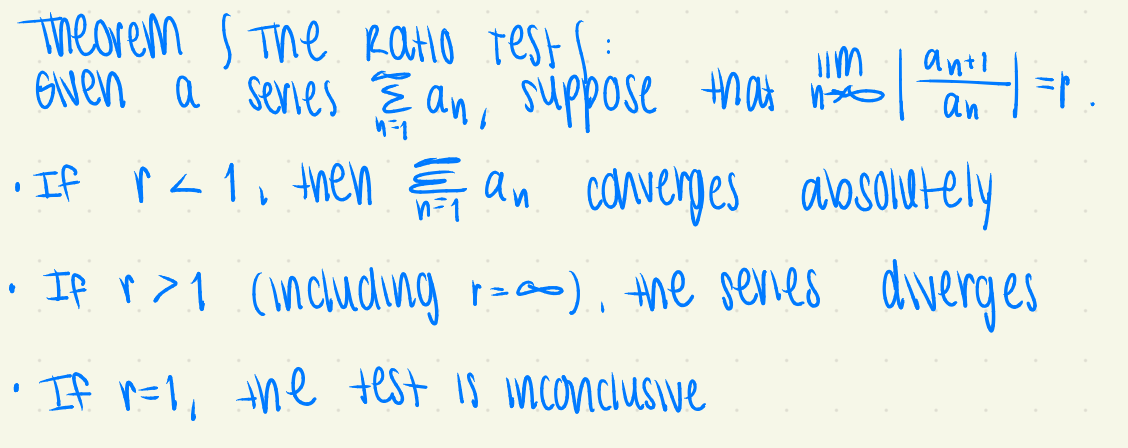 Theorem (The Ratio Test):
Given a series ∑_{n=1}^{∞} a_n, suppose that lim_{n→∞} |a_{n+1}/a_n| = r.
• If r < 1, then ∑_{n=1}^{∞} a_n converges absolutely
• If r > 1 (including r = ∞), the series diverges
• If r = 1, the test is inconclusive